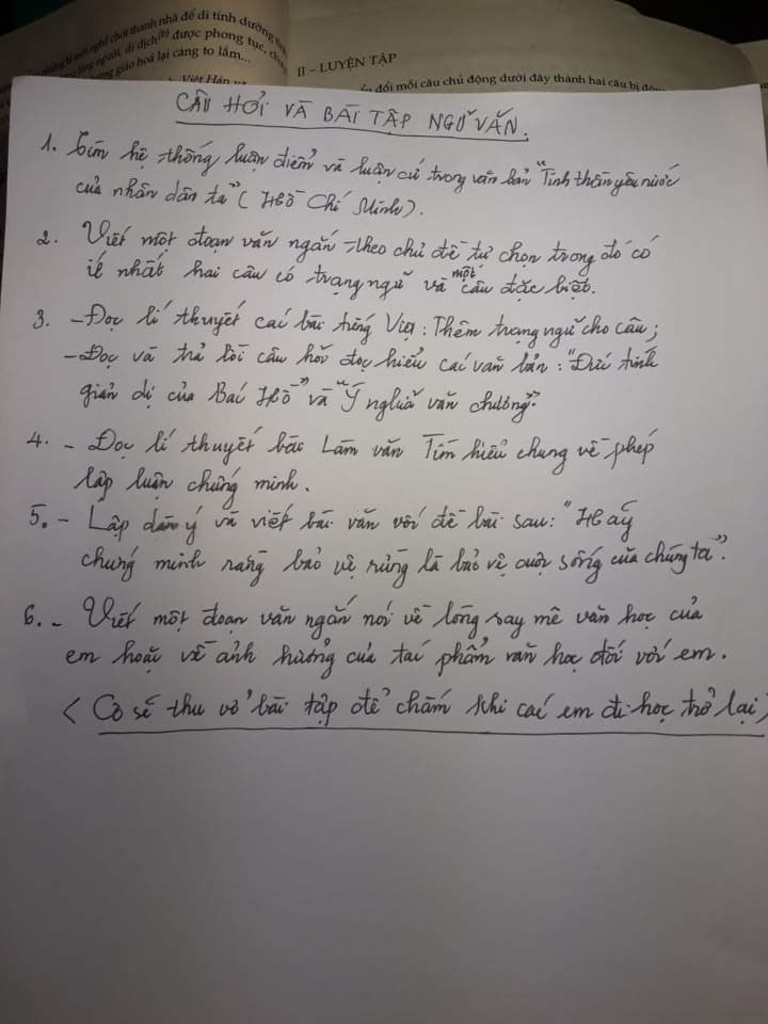 chơi thanh nhã để di tính dưỡng
lòng người, di dịch(8) được phong tục,
giáo hoá lại càng to lắm...
Việt Hán
II – LUYỆN TẬP
đổi mỗi câu chủ động dưới đây thành hai câu bị động
CÂU HỎI VÀ BÀI TẬP NGỮ VĂN.
1. Tìm hệ thống luận điểm và luận cứ trong văn bản "Tinh thần yêu nước
của nhân dân ta" (Hồ Chí Minh).
2. Viết một đoạn văn ngắn theo chủ đề tự chọn trong đó có
ít nhất hai câu có trạng ngữ và một câu đặc biệt.
3. - Đọc lí thuyết các bài tiếng Việt: Thêm trạng ngữ cho câu;
- Đọc và trả lời câu hỏi đọc hiểu các văn bản: "Đức tính
giản dị của Bác Hồ" và "Ý nghĩa văn chương".
4. - Đọc lí thuyết bài Làm văn Tìm hiểu chung về phép
lập luận chứng minh.
5. - Lập dàn ý và viết bài văn với đề bài sau: "Hãy
chứng minh rằng bảo vệ rừng là bảo vệ cuộc sống của chúng ta".
6. - Viết một đoạn văn ngắn nói về lòng say mê văn học của
em hoặc về ảnh hưởng của tác phẩm văn học đối với em.
< Cô sẽ thu vở bài tập để chấm khi các em đi học trở lại>